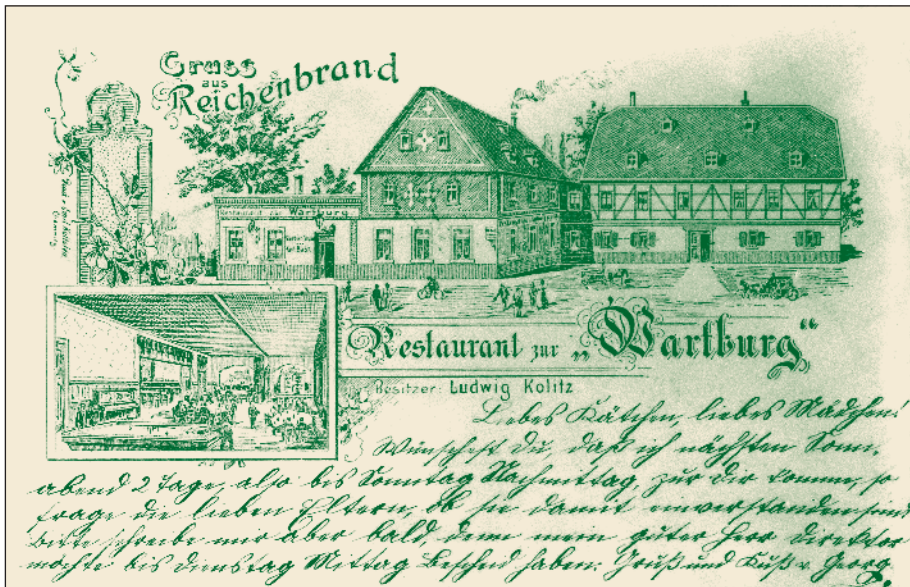 Gruss
aus
Reichenbrand
Restaurant zur Wartburg
Restaurant zur „Wartburg“
Besitzer: Ludwig Kolitz
Liebes Kätchen, liebes Mädchen!
Wünschest Du, daß ich nächsten Sonn-
abend 2 Tage, also bis Sonntag Nachmittag, zur Dir komme, so
frage die lieben Eltern, ob sie damit einverstanden sind
Bitte schreibe mir aber bald, denn mein guter Herr Direktor
möchte bis Dienstag Mittag Bescheid haben. Gruß und Kuß v. Georg.